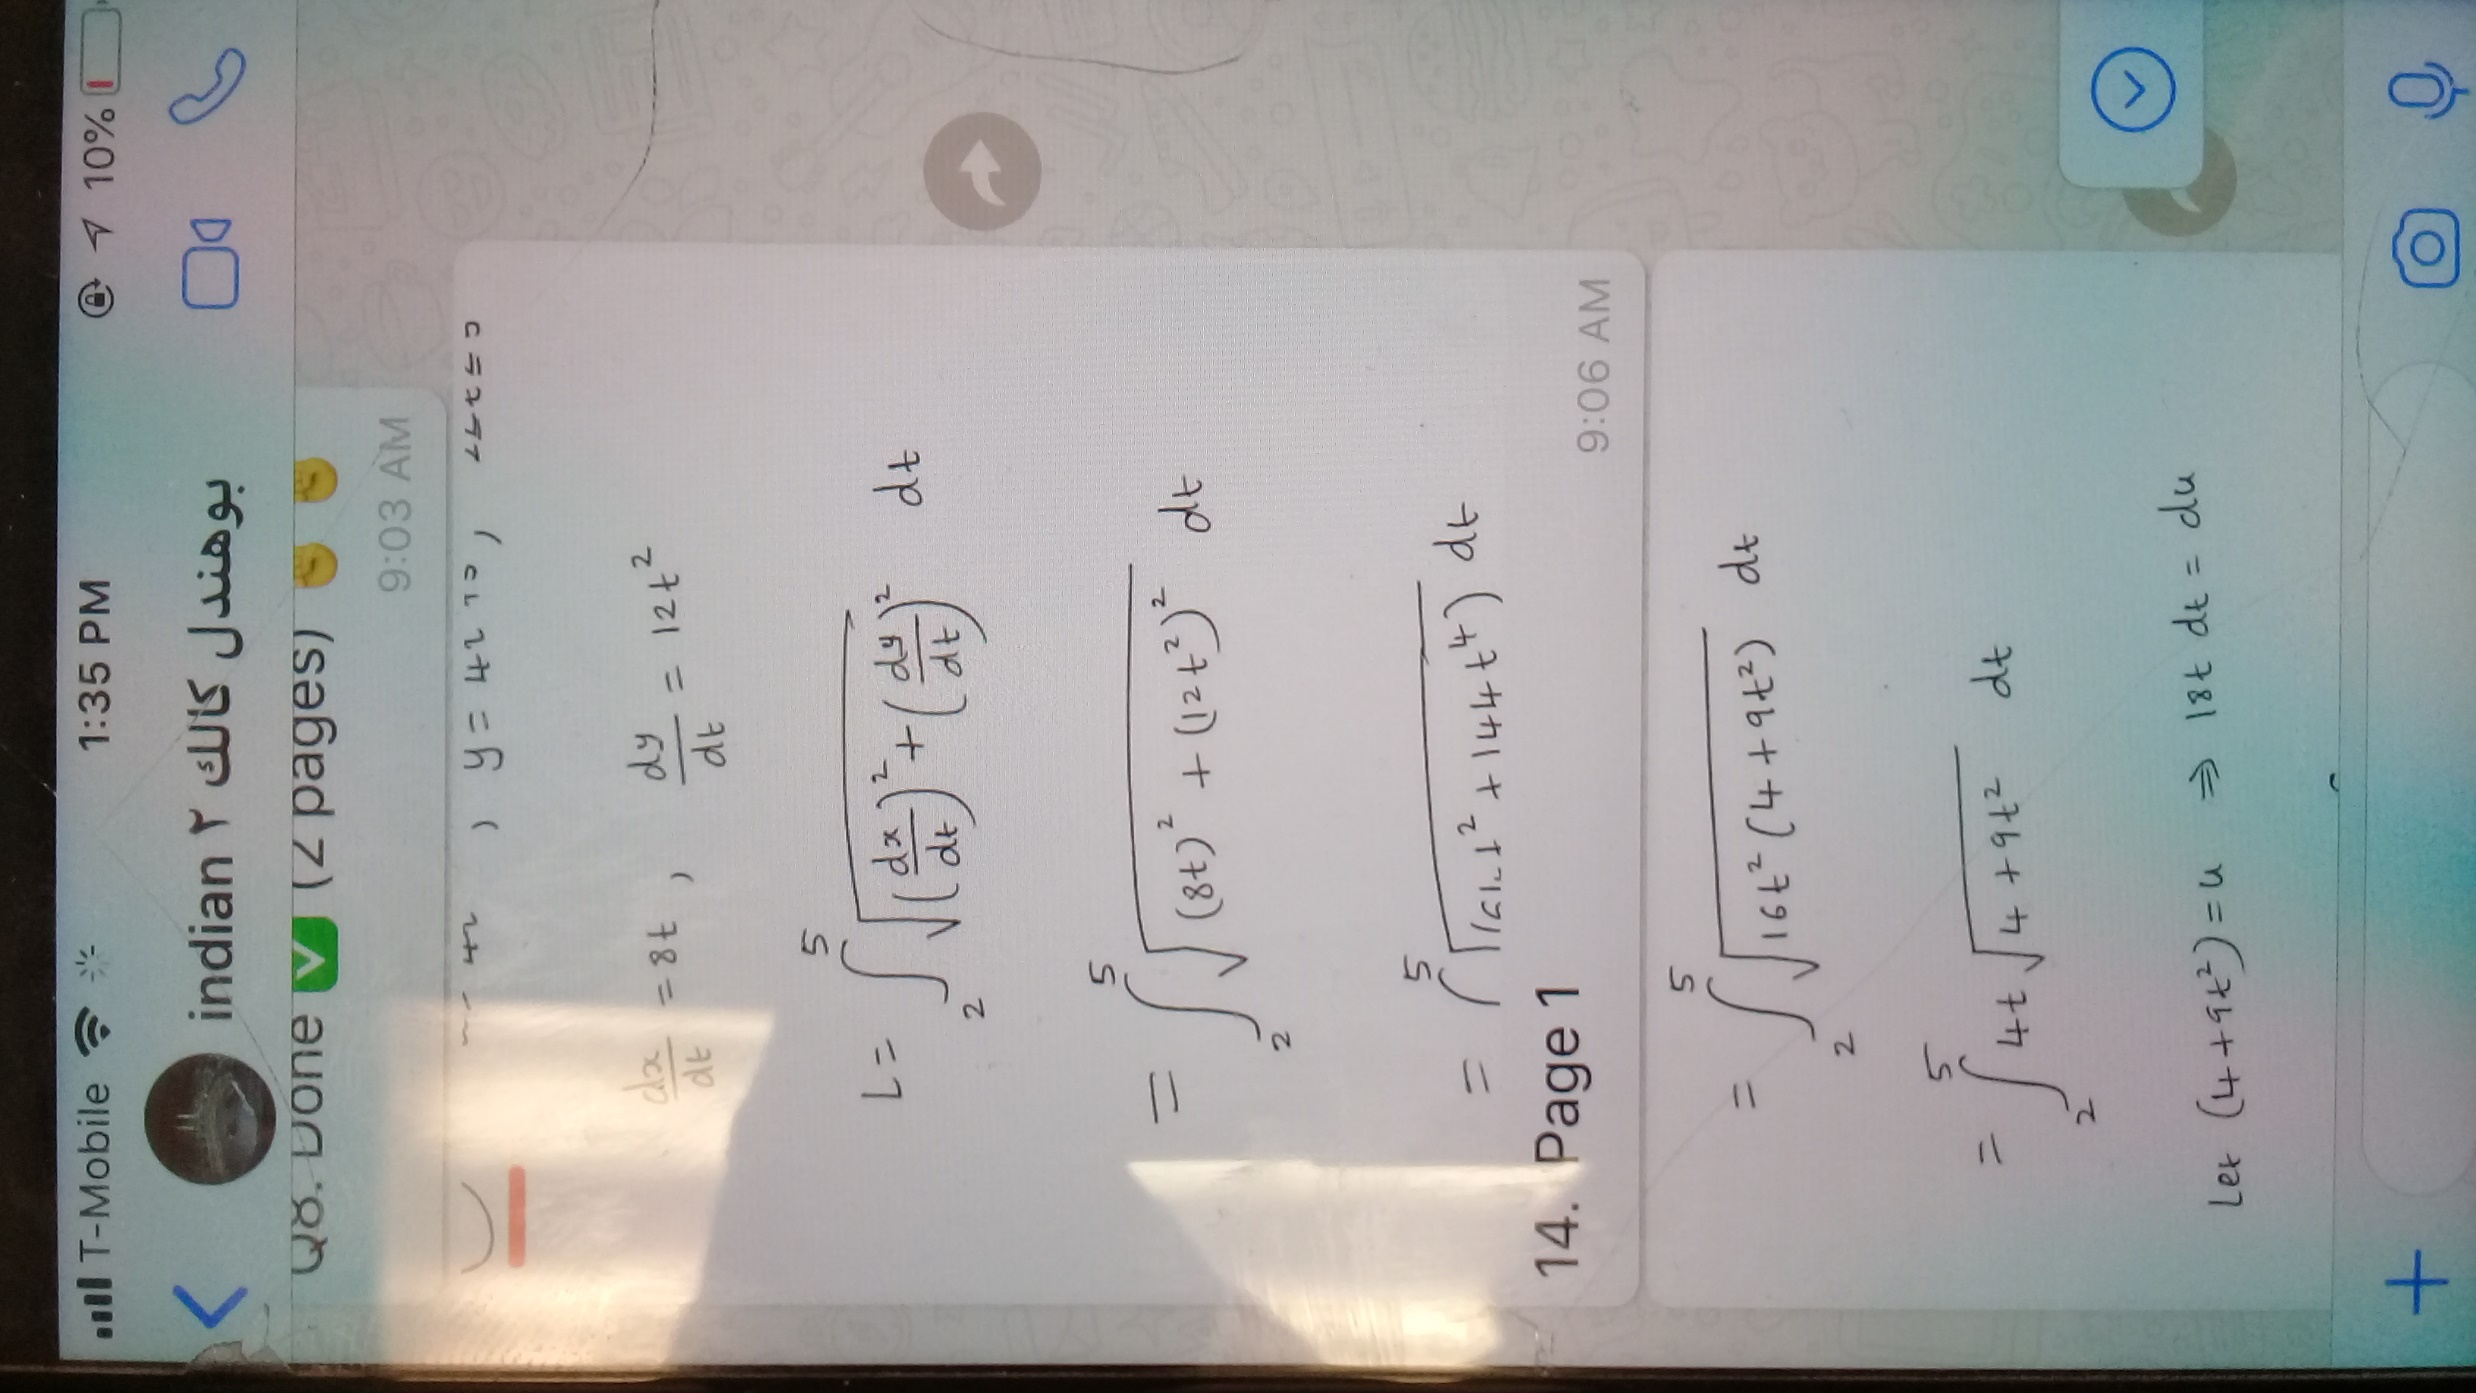 T-Mobile 1:35 PM 10%
indian بوهندل كالك ٢
Q8. Done ✅ (2 pages)
9:03 AM
dx/dt = 8t , dy/dt = 12t²
L = ∫₂⁵ √((dx/dt)² + (dy/dt)²) dt
= ∫₂⁵ √((8t)² + (12t²)²) dt
14. Page 1
9:06 AM
= ∫₂⁵ √(16t² (4 + 9t²)) dt
= ∫₂⁵ 4t √(4 + 9t²) dt
Let (4+9t²) = u ⇒ 18t dt = du